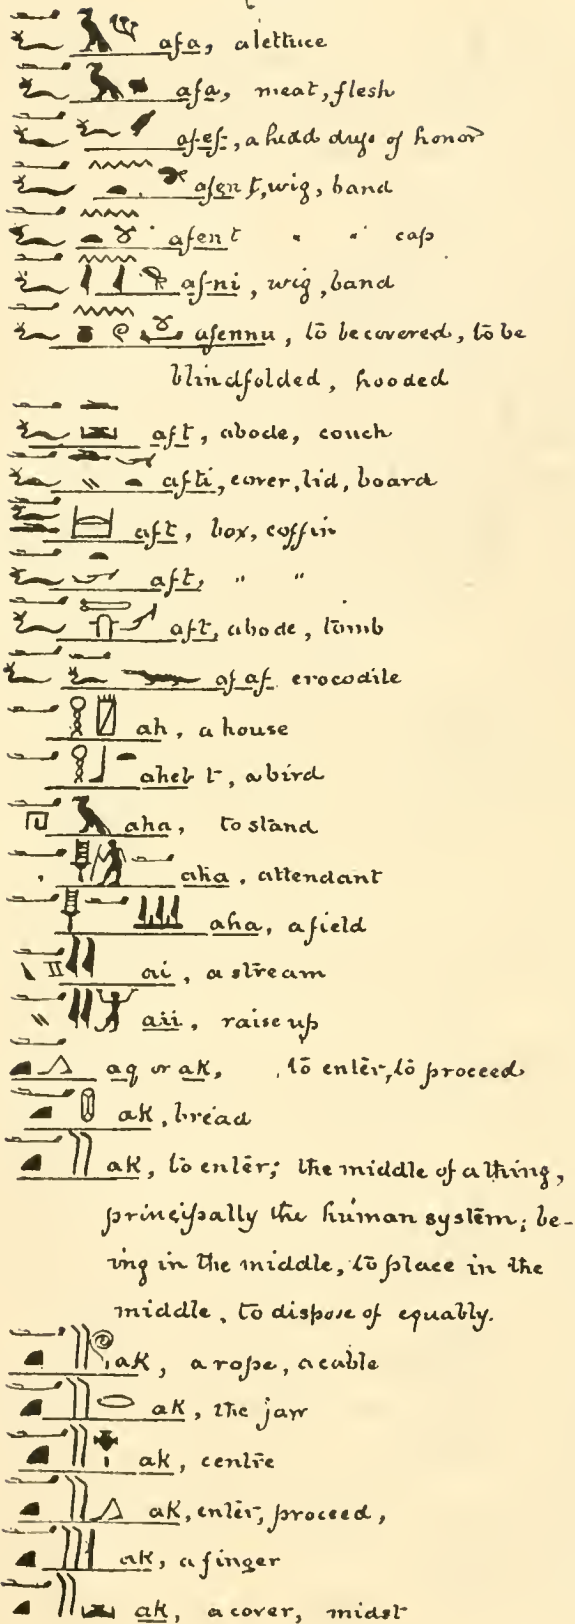 afa, a lettuce
afa, meat, flesh
afef, a head dress of honor
afen t, wig, band
afen t " " cap
af-ni, wig, band
afennu, to be covered, to be
blindfolded, hooded
aft, abode, couch
afti, cover, lid, board
aft, box, coffin
aft, " "
aft, abode, tomb
af af crocodile
ah, a house
aheb t, a bird
aha, to stand
aha, attendant
aha, a field
ai, a stream
aii, raise up
aq or ak, to enter, to proceed
ak, bread
ak, to enter; the middle of a thing,
principally the human system; be-
ing in the middle, to place in the
middle, to dispose of equably.
ak, a rope, a cable
ak, the jaw
ak, centre
ak, enter, proceed,
ak, a finger
ak, a cover, midst